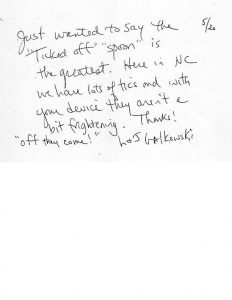 Just wanted to say the 5/20
"Ticked off" "spoon" is
the greatest. Here in NC
we have lots of tics and with
your device they aren't a
bit frightening. Thanks!
"off they come!" GAlkowski